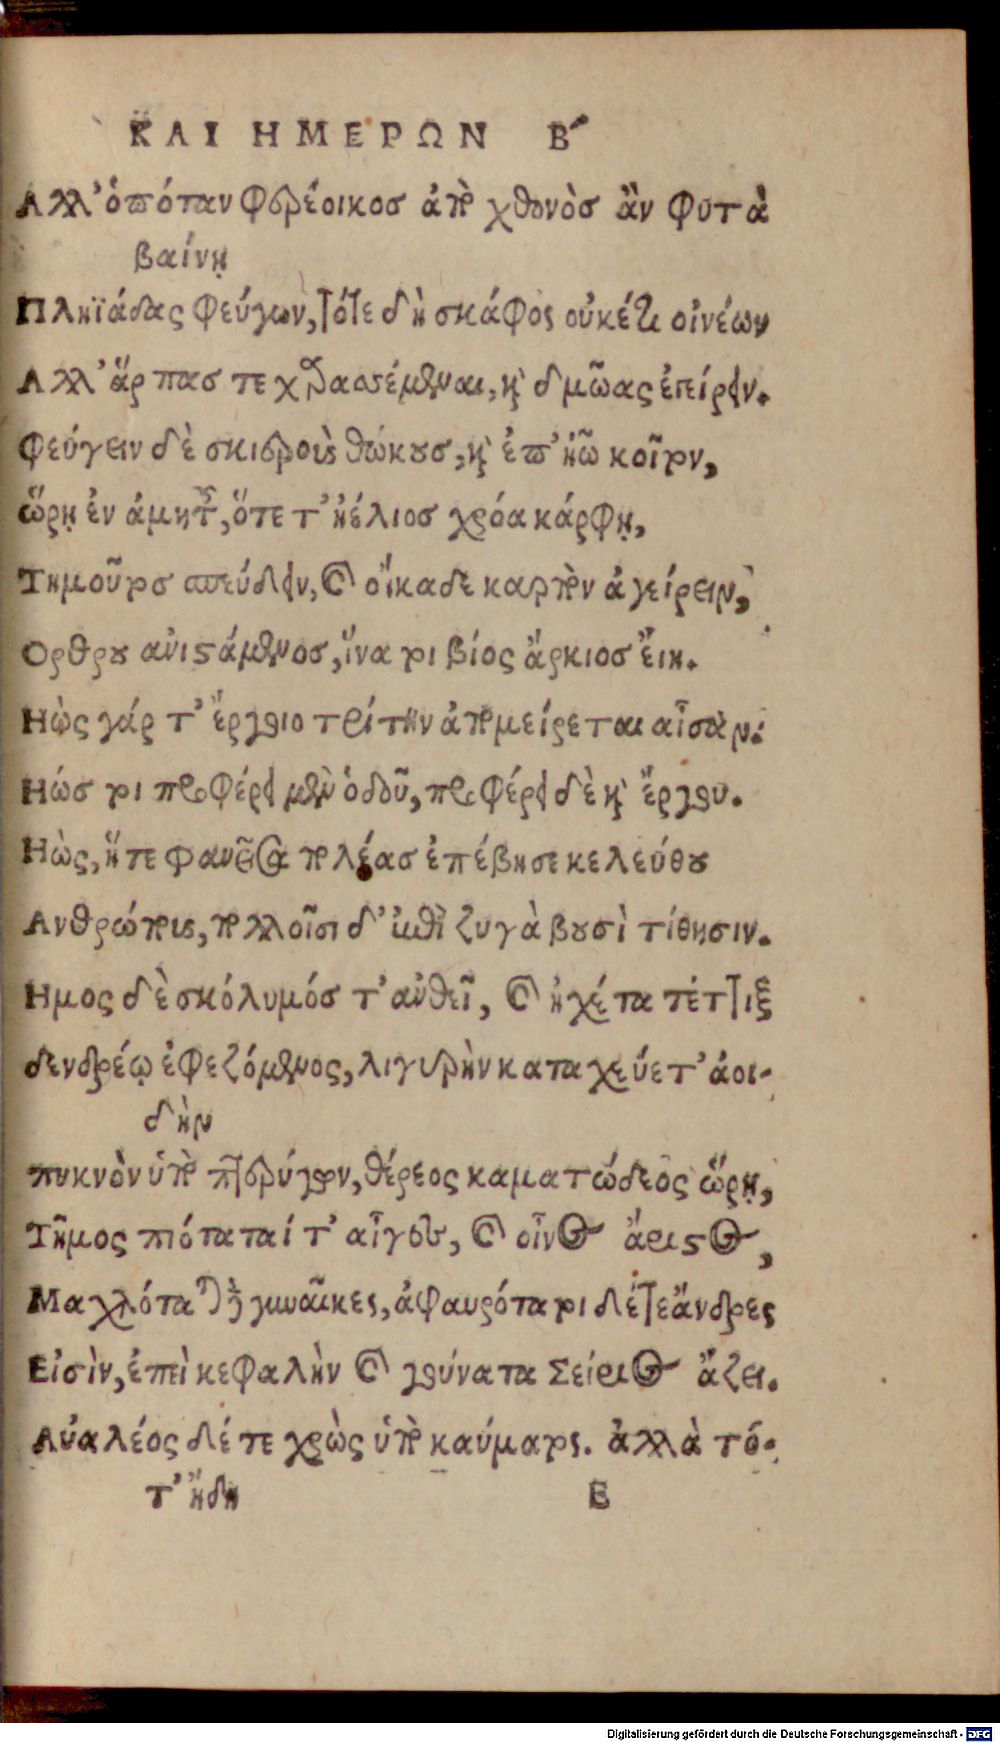 ΚΑΙ ΗΜΕΡΩΝ Β´
Αλλ' ὁπόταν φερέοικοσ ἀπὸ χθονὸσ ἂν φυτὰ
βαίνῃ
Πληϊάδας φεύγων, τότε δὴ σκάφος οὐκέτι οἰνέων
Αλλ' ἅρπασ τε χαρασσέμεναι, καὶ δμῶας ἐπείρειν.
Φεύγειν δὲ σκιεροὺς θώκουσ, καὶ ἐπ' ἠῶ κοῖτον,
ὥρῃ ἐν ἀμητοῦ, ὅτε τ' ἠέλιοσ χρόα κάρφῃ,
Τημοῦτοσ σπεύδειν, καὶ οἴκαδε καρπὸν ἀγείρειν,
Ορθρου ἀνιστάμενοσ, ἵνα τοι βίος ἄρκιοσ εἴη.
Ηὼς γάρ τ' ἔργοιο τρίτην ἀπομείρεται αἶσαν.
Ηώσ τοι προφέρει μὲν ὁδοῦ, προφέρει δὲ καὶ ἔργου.
Ηὼς, ἥτε φανεῖσα πολέασ ἐπέβησε κελεύθου
Ανθρώπους, πολλοῖσι δ' ἐπὶ ζυγὰ βουσὶ τίθησιν.
Ημος δὲ σκόλυμόσ τ' ἀνθεῖ, καὶ ἠχέτα τέττιξ
δενδρέῳ ἐφεζόμενος, λιγυρὴν καταχεύετ' ἀοι-
δὴν
πυκνὸν ὑπὸ πτερύγων, θέρεος καματώδεος ὥρῃ,
Τῆμος πιόταταί τ' αἶγες, καὶ οἶνος ἄριστος,
Μαχλόταται δὲ γυναῖκες, ἀφαυρότατοι δέ τε ἄνδρες
Εἰσὶν, ἐπεὶ κεφαλὴν καὶ γούνατα Σείριος ἄζει.
Αὐαλέος δέ τε χρὼς ὑπὸ καύματος. ἀλλὰ τό-
τ' ἤδη E
Digitalisierung gefördert durch die Deutsche Forschungsgemeinschaft - DFG